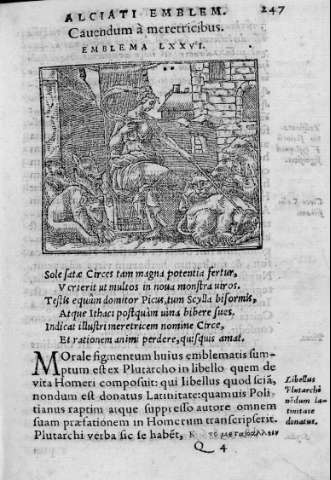 ALCIATI EMBLEM. 247
Cauendum à meretricibus.
EMBLEMA LXXVI.
Sole satæ Circes tam magna potentia fertur,
Verterit ut multos in noua monstra uiros.
Testis equûm domitor Picus, tum Scylla biformis,
Atque Ithaci postquàm uina bibere sues.
Indicat illustri meretricem nomine Circe,
Et rationem animi perdere, quisquis amat.
Morale figmentum huius emblematis sum-
ptum est ex Plutarcho in libello quem de
vita Homeri composuit: qui libellus quod sciã,
nondum est donatus Latinitate: quamuis Poli-
tianus raptim atque suppresso autore omnem
suam præfationem in Homerum transcripserit.
Plutarchi verba sic se habēt,
Libellus
Plutarchi
nōdum la-
tinitate
donatus.
Q 4